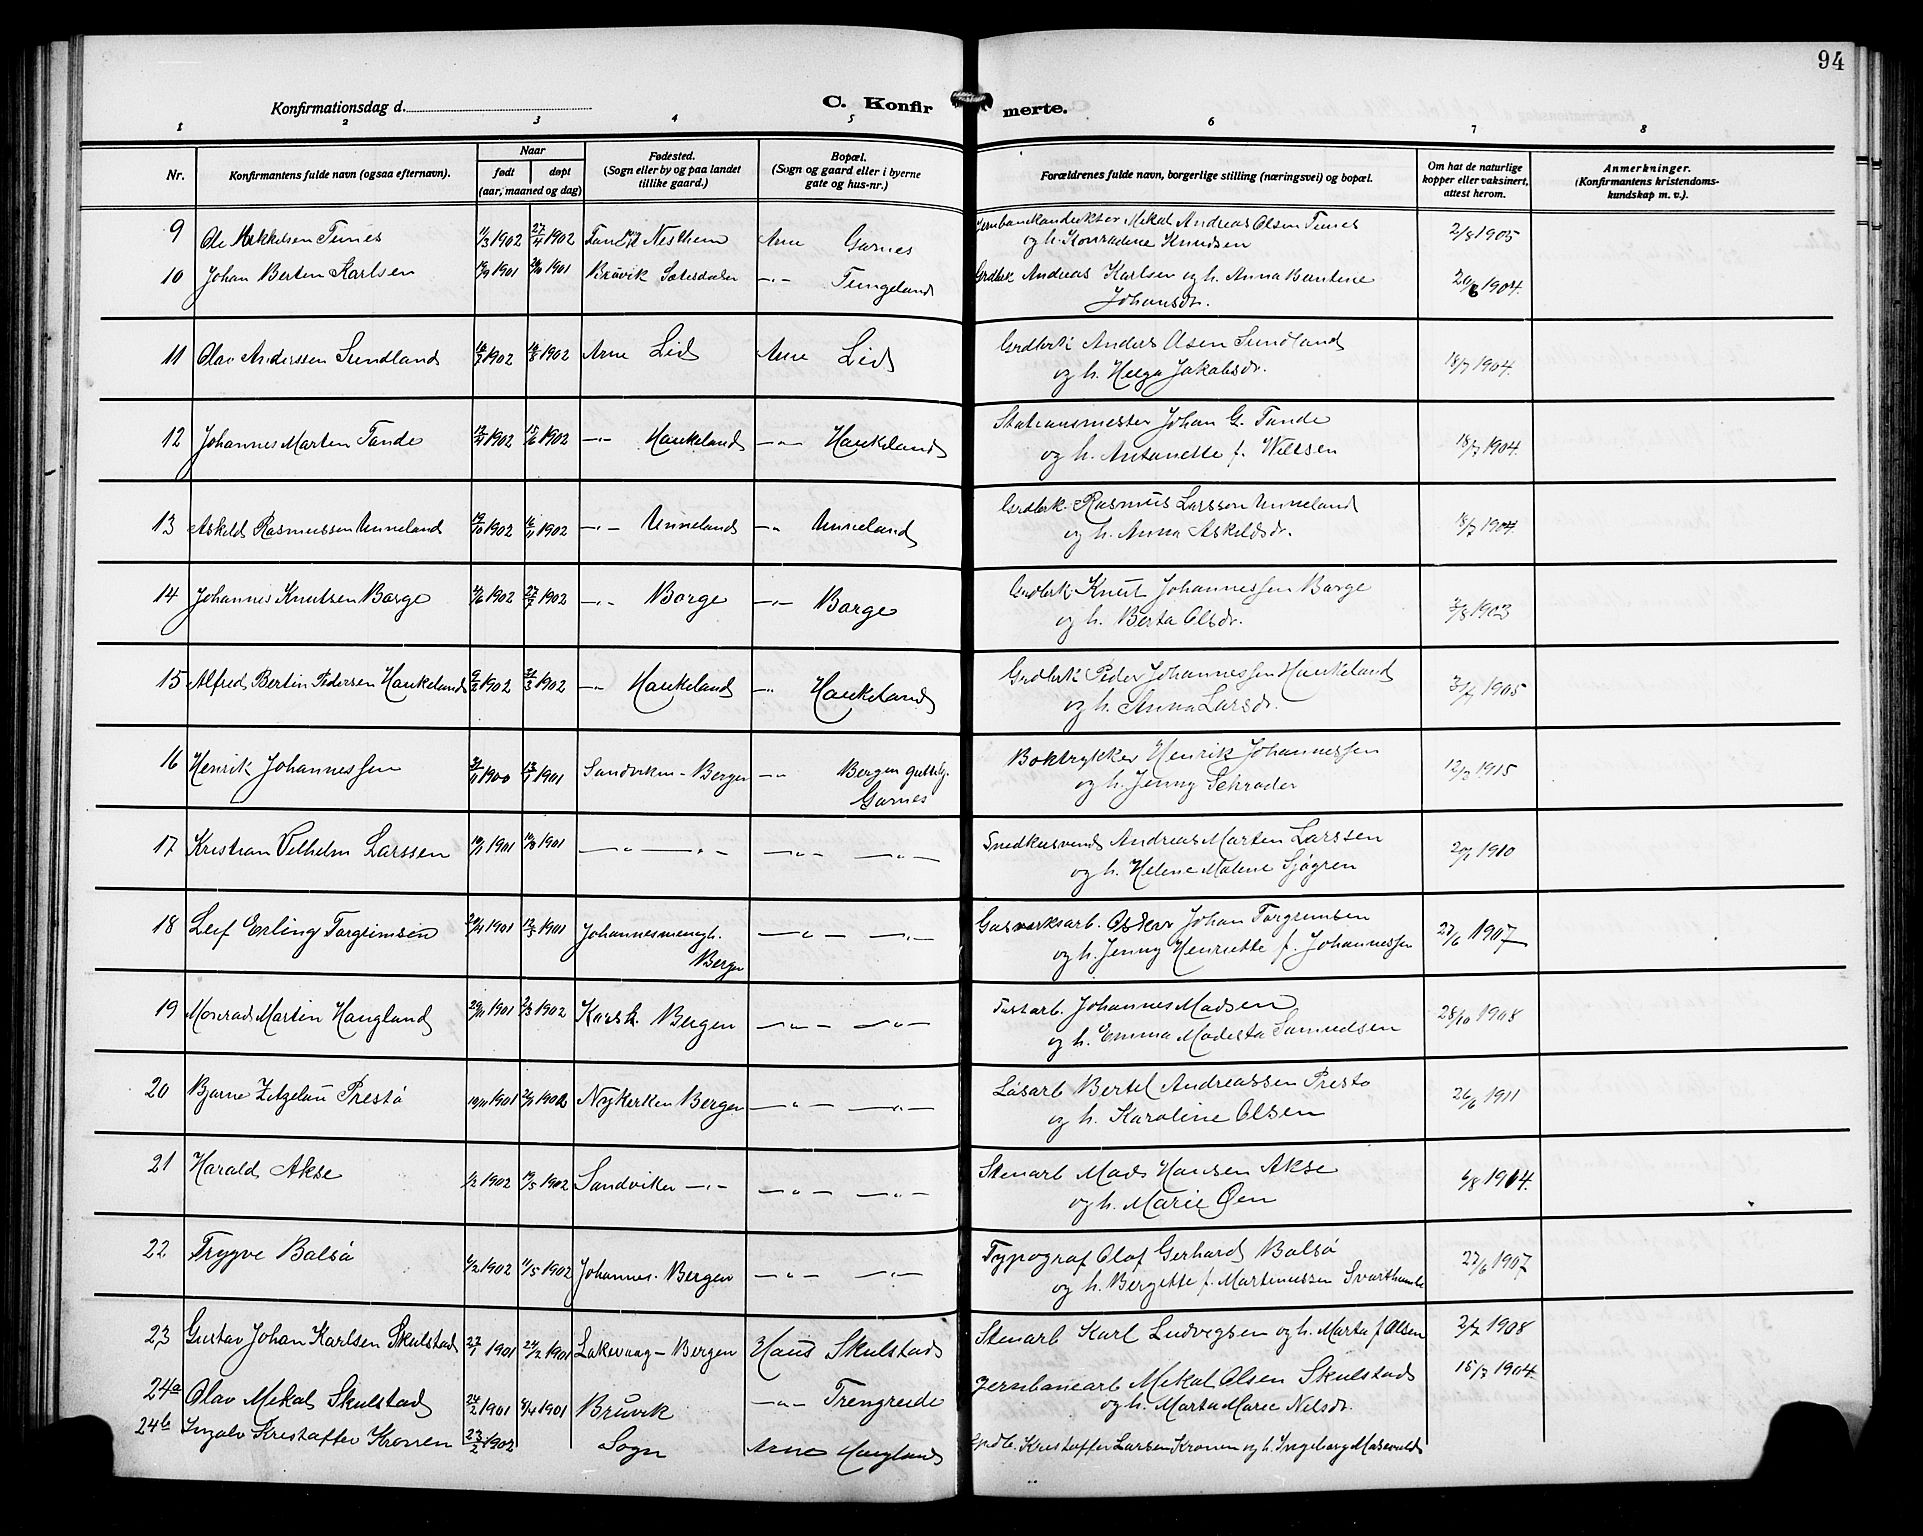 94
Konfirmationsdag d.
C. Konfirmerte.
1 2 3 4 5 6 7 8
Nr.
Konfirmantens fulde navn (ogsaa efternavn).
Naar
født døpt
(aar, maaned og dag)
Fødested.
(Sogn eller by og paa landet
tillike gaard.)
Bopæl.
(Sogn og gaard eller i byerne
gate og hus-nr.)
Forældrenes fulde navn, borgerlige stilling (næringsvei) og bopæl.
Om hat de naturlige
kopper eller vaksinert,
attest herom.
Anmerkninger.
(Konfirmantens kristendoms-
kundskap m. v.).
9 Ole Mikkelsen Tunes 11/3 1902 27/4 1902 Nesthun Arne Garnes Jernbanekonduktør Mekal Andreas Olsen Tunes 2/8 1905
og h. Konradene Knudsen
10 Johan Berten Karlsen 1901 1901 Bruvik -"- Tungeland Grdbrk Andreas Karlsen og h. Anna Bantine 20/6 1904.
Johansdr.
11 Olav Anderssen Sundland 1902 1902 Arne Lid Arne Lid Grdbrk Anders Olsen Sundland 18/7 1904.
og h. Helga Jakobsdr.
12 Johannes Marten Tande 1902 15/6 1902 -"- Haukeland -"- Haukeland Stationsmester Johan G. Tande 18/7 1904.
og h. Antonette f. Willsen
13 Askeld Rasmussen Unneland 19/10 1902 16/11 1902 -"- Unneland -"- Unneland Grdbrk. Rasmus Larsson Unneland 18/7 1904.
og h. Anna Askeldsdr.
14 Johannes Knutsen Borge 1902 27/7 1902 -"- Borge -"- Borge Grdbrk Knut Johannessen Borge 3/8 1903
og h. Berta Olsdr.
15 Alfred Bertin Pedersen Haukeland 9/2 1902 31/3 1902 -"- Haukeland -"- Haukeland Grdbrk Peder Johannessen Haukeland 1905
og h. Anna Larsdr.
16 Henrik Johannessen 1900 13/1 1901 Sandviken - Bergen -"- Bergen guttehj. Boktrykker Henrik Johannessen 12/3 1915
Garnes og h. Jenny Schrøder
17 Kristian Vilhelm Larssen 1901 1901 -"- -"- -"- -"- Snedkersvend Andreas Marten Larssen 1910
og h. Helene Malene Sjøgren
18 Leif Erling Torgrimsen 1901 12/5 1901 Johannesmenigh. -"- -"- Gasverksarb. Oskar Johan Torgrimsen 27/6 1907
Bergen og h. Jenny Henriette f. Johannessen
19 Monrad Martin Haugland 29/11 1901 1902 Korsk. Bergen -"- -"- Johannes Madsen 28/10 1908
og h. Emma Modesta Samuelsen
20 Bjarne Presto 10/11 1901 1902 Nykerken Bergen -"- -"- Løsarb Bertel Andreassen Presto 26/6 1911
og h. Karoline Olsen
21 Harald Akse 1/2 1902 19/5 1902 Sandviken -"- -"- -"- Stenarb Mads Hansen Akse 6/8 1904.
og h. Marie Øen
22 Trygve Balsø 6/2 1902 11/5 1902 Johannes. Bergen -"- -"- Typograf Olaf Gerhard Balsø 27/6 1907
og h. Bergette f. Martinussen
23 Gustav Johan Karlsen Skulstad 27/1 1901 24/2 1901 Laksevaag - Bergen Haus Skulstad Stenarb Karl Ludvigsen og h. Marta f. Olsen 1908
24a Olav Mekal Skulstad 24/2 1901 8/4 1901 Bruvik -"- Trengereide Jernbanearb Mekal Olsen Skulstad 15/7 1904.
og h. Marta Marie Nelsdr.
24b Ingolv Kristoffer Kronen 23/2 1902 Sogn Arne Haugland Grdb. Kristoffer Larsen Kronen og h. Ingeborg